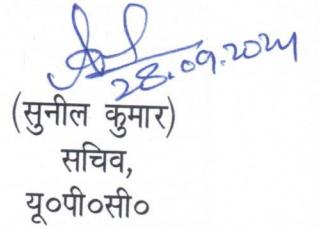 28.09.2021
(सुनील कुमार)
सचिव,
यू०पी०सी०